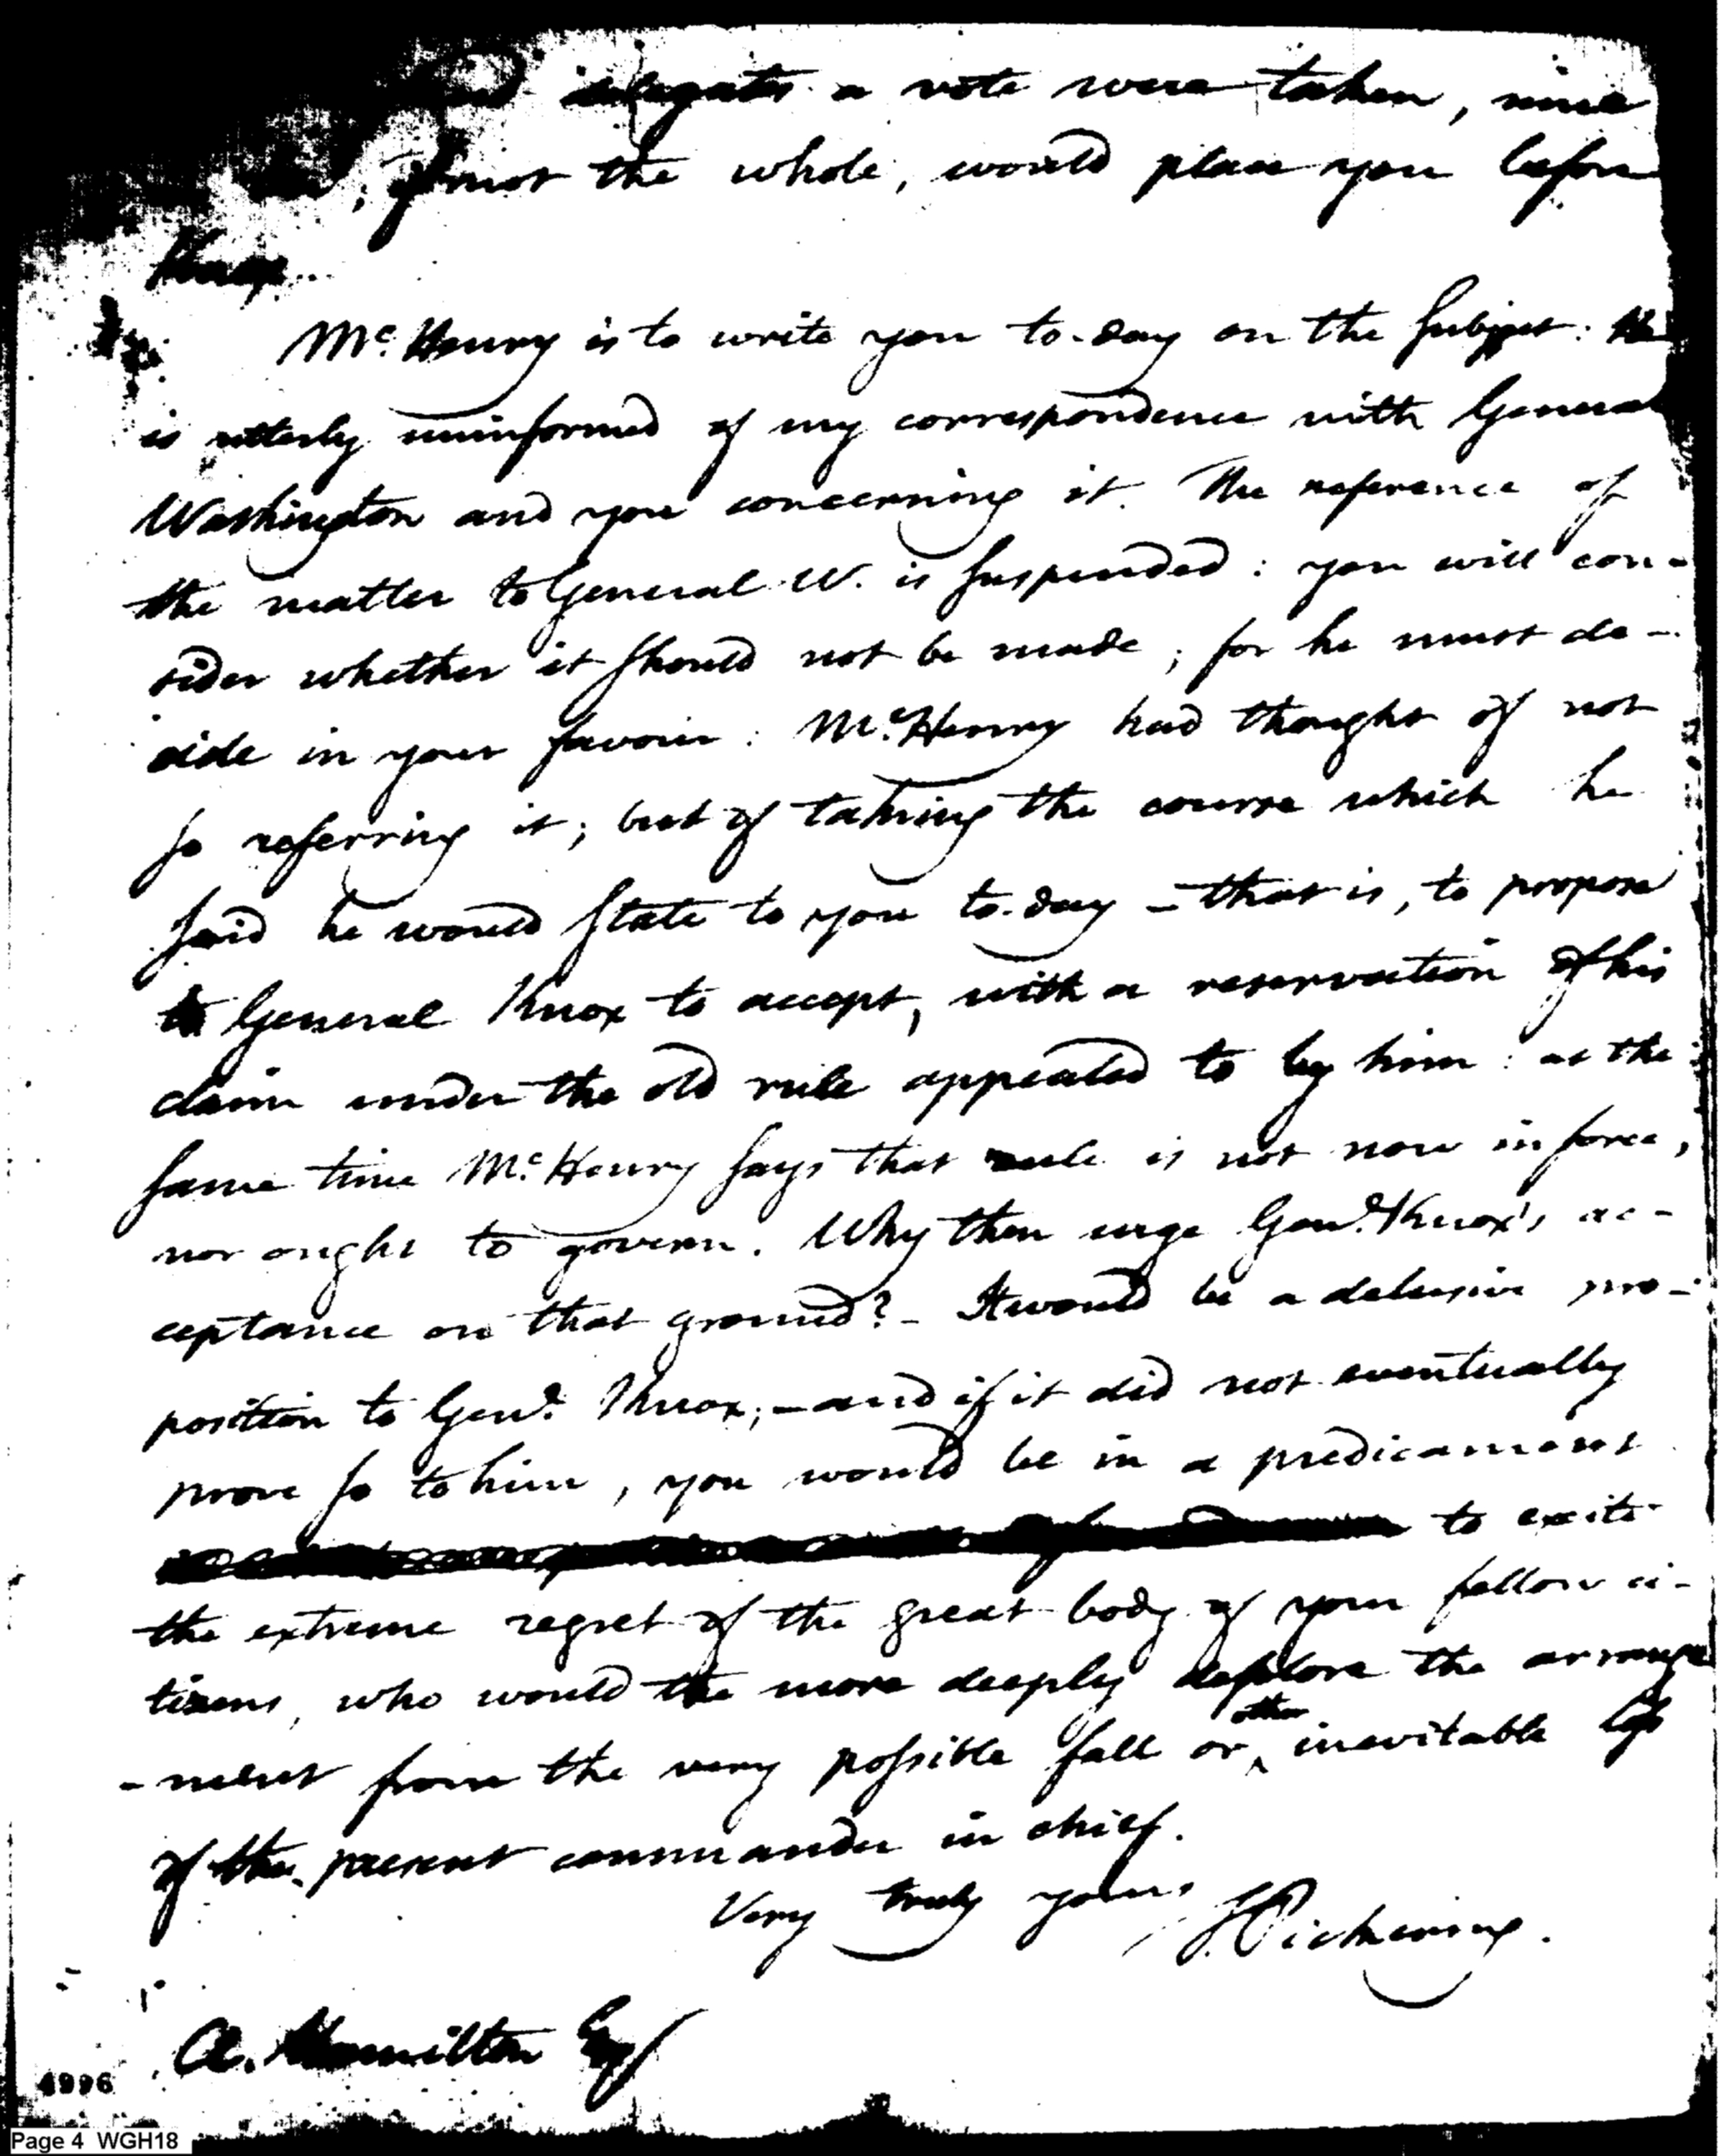 delegates a vote were taken, nine
, if not the whole, would place you before
Knox.
McHenry is to write you to-day on the subject: He
is utterly uninformed of my correspondence with General
Washington and you concerning it. The reference of
the matter to General W. is suspended: you will con-
sider whether it should not be made; for he must de-
cide in your favour. McHenry had thought of not
so referring it; but of taking the course which he
said he would state to you to-day - that is, to propose
to General Knox to accept, with a reservation of his
claim under the old rule appealed to by him: at the
same time McHenry says that rule is not now in force,
nor ought to govern. Why then urge Genl. Knox's ac-
ceptance on that ground? - It would be a delusive pro-
position to Genl. Knox; - and if it did not eventually
prove so to him, you would be in a predicament
to excite
the extreme regret of the great body of your fellow ci-
tizens, who would the more deeply deplore the arrange
-ment from the very possible fall or other inevitable loss
of the present commander in chief.
Very truly yours T. Pickering.
A. Hamilton Esq
4996
Page 4 WGH18